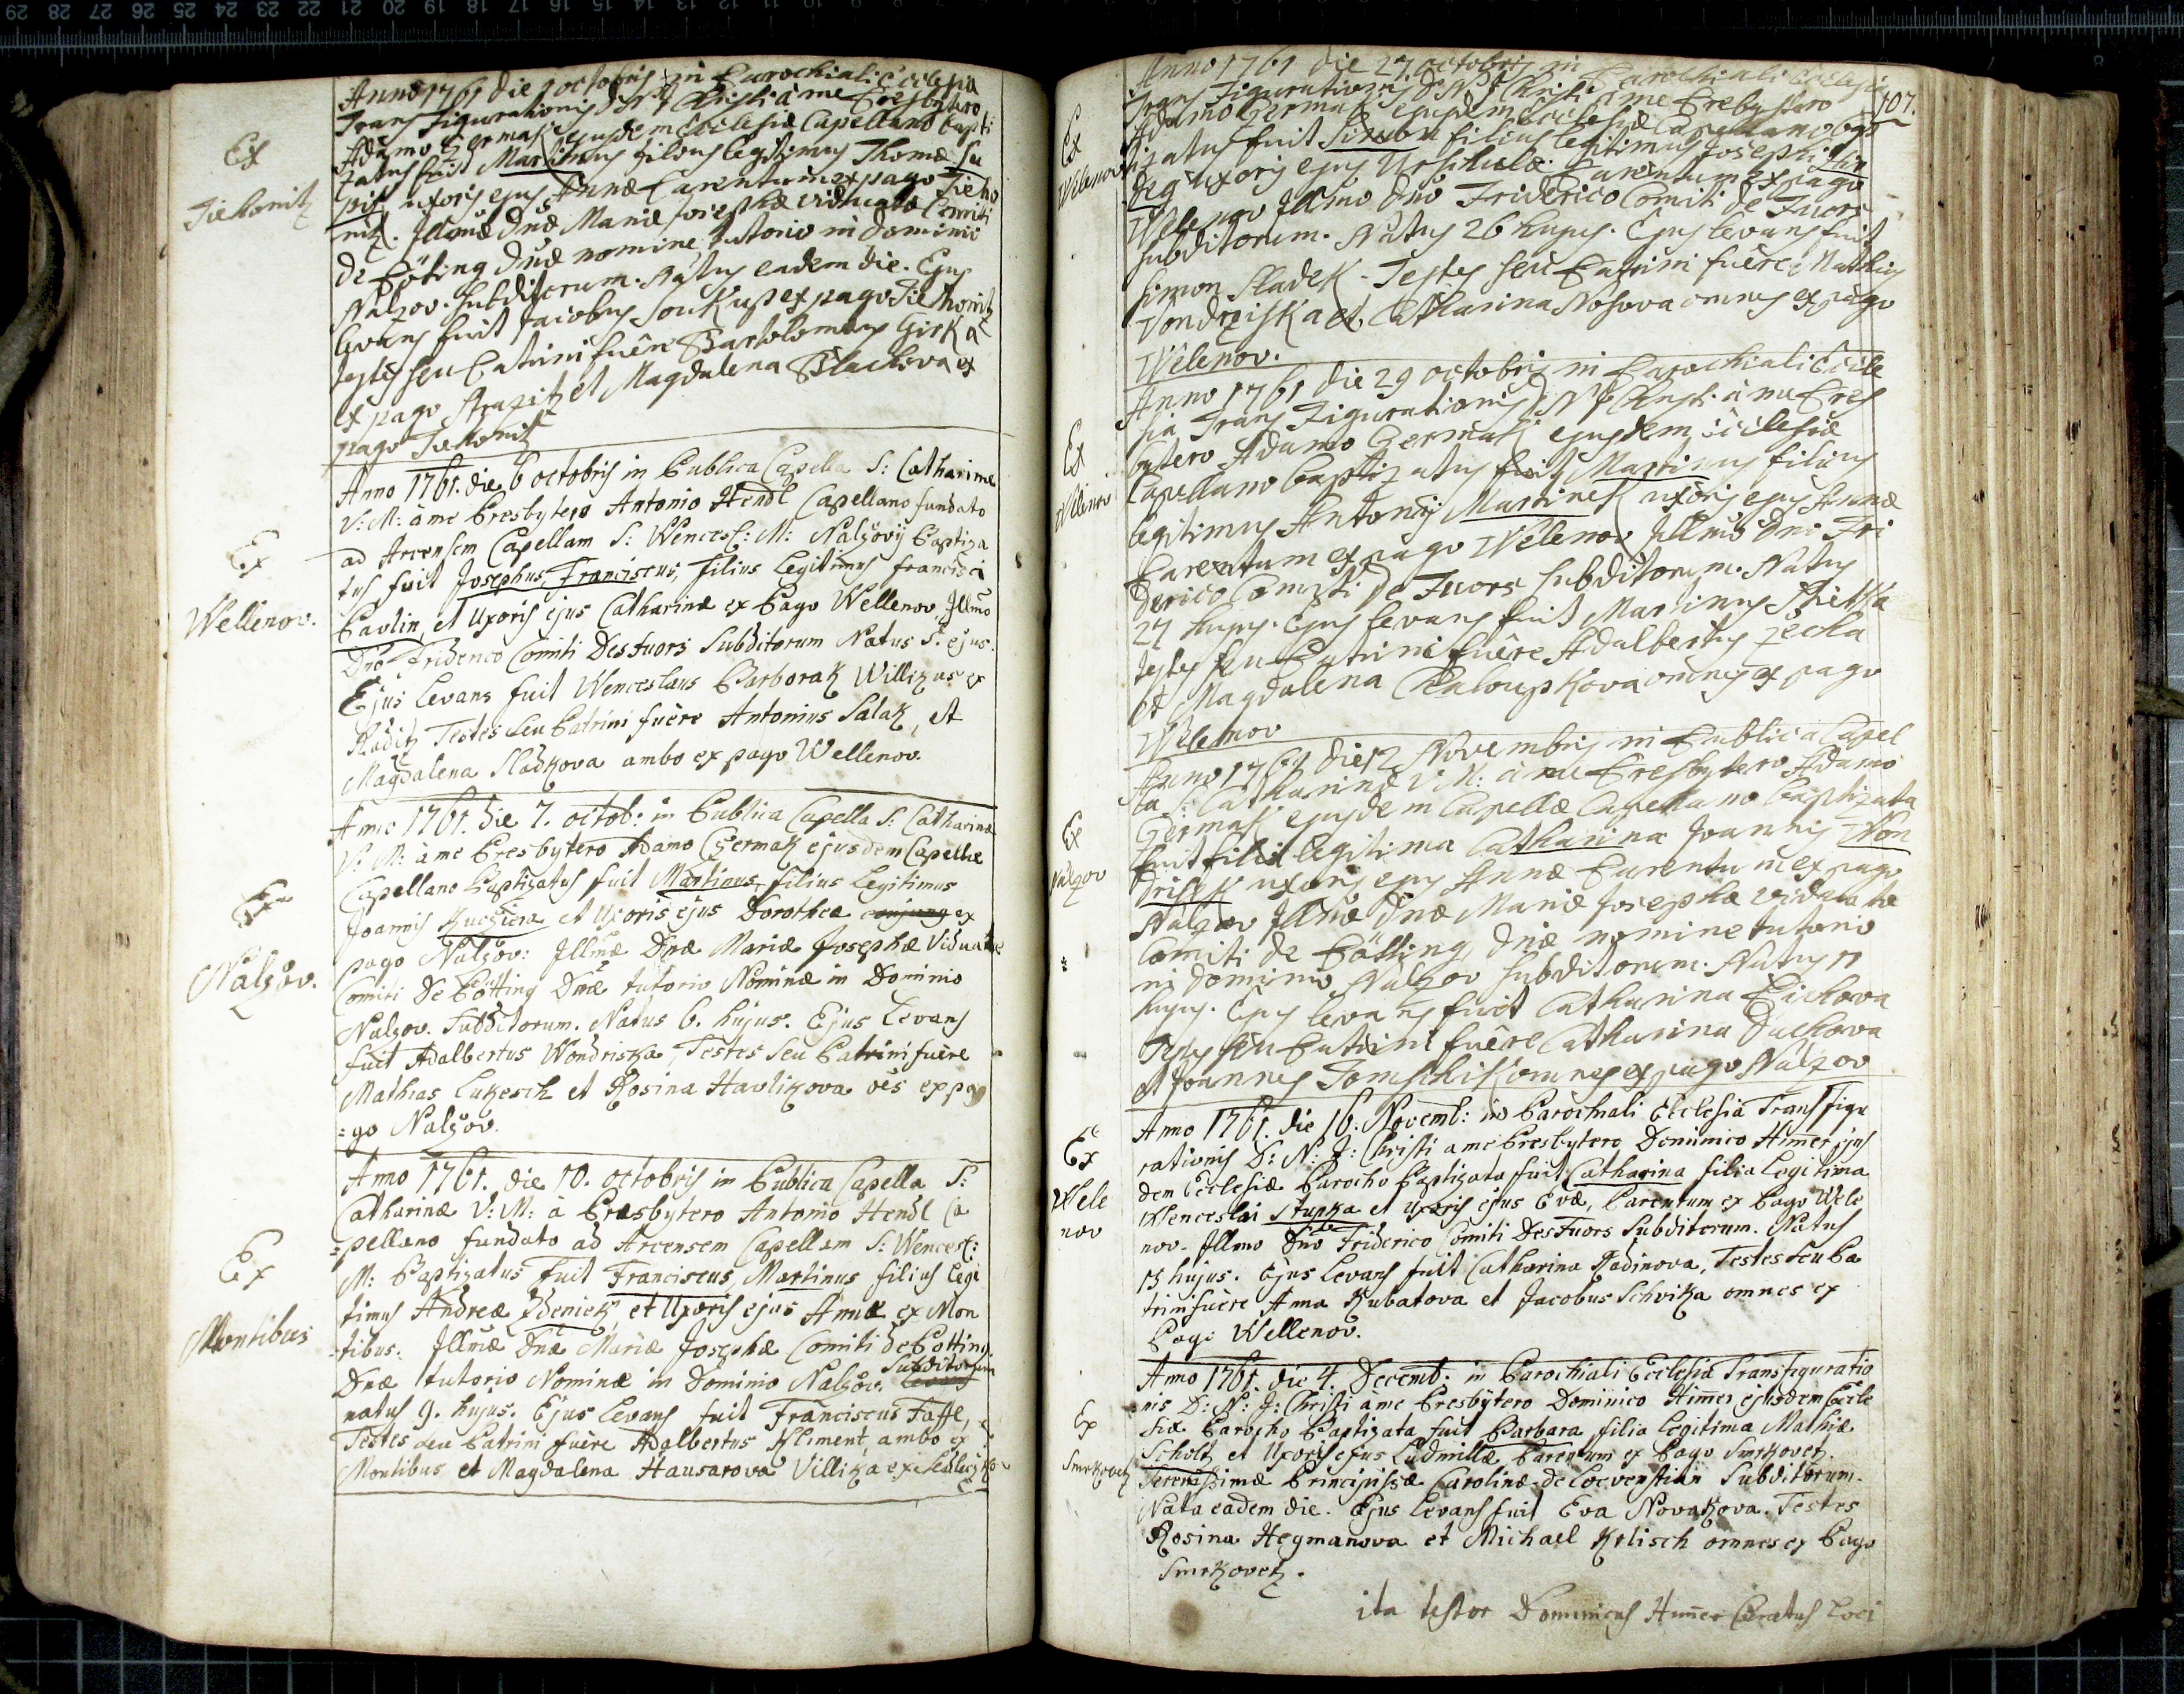 Ex
Tiekonitz
Anno 1761 die 1 octobris in Parochiali Ecclesia
Trans Figurationis D N J Christi à me Presbytero
Adamo Czermak ejusdem Ecclesiæ Capellano bapti
zatus fuit Martinus filius legitimus Thomæ
uxoris ejus Annæ Parentum ex pago Tieko
nitz. Illmæ Dnæ Mariæ Josephæ viduatæ Comiti
de Pöting Dnæ nomine tutorio in Dominio
Nalzov. Subditorum. Natus eadem die. Ejus
levans fuit Jacobus Soukup ex pago Tiekonitz
testes seu Patrini fuêre Bartolomæus Girka
ex pago Strazitz et Magdalena Blachova ex
pago Tiekonitz
Ex
Wellenov.
Anno 1761. die 6 octobris in Publica Capella S: Catharinæ
V: M: à me Presbytero Antonio Hendl Capellano fundato
ad Arcensem Capellam S: Wencesl: M: Nalzovÿ Baptiza
tus fuit Josephus, Franciscus, Filius Legitimus Francisci
Pavlin, et Uxoris ejus Catharinæ ex Pago Wellenov, Illmo
Dno Friderico Comiti Desfuors Subditorum Natus 5. ejus.
Ejus Levans fuit Wenceslaus Barborak Willikus ex
Kaditz Testes seu Patrini fuêre Antonius Salak, et
Magdalena Sladkova ambo ex pago Wellenov.
Ex
Nalzov.
Anno 1761. die 7. octob: in Publica Capella S: Catharinæ
V: M: à me Presbytero Adamo Czermak ejusdem Capellæ
Capellano Baptizatus fuit Martinus, filius Legitimus
Joannis Kuczera et Uxoris ejus Dorotheæ conjung ex
pago Nalzov: Illmæ Dnæ Mariæ Josephæ Viduatæ
Comiti De Pötting Dnæ tutorio Nominæ in Dominio
Nalzov. Subditorum. Natus 6. hujus. Ejus Levans
fuit Adalbertus Wondriska, Testes seu Patrini fuêre
Mathias Lukesch et Rosina Havlikova oēs ex pa
=go Nalzov.
Ex
Montibus
Anno 1761. die 10. octobris in Publica Capella S:
Catharinæ V: M: à Præsbytero Antonio Hendl Ca
=pellano fundato ad Arcensem Capellam S: Wencesl:
M: Baptizatus fuit Franciscus, Martinus filius Legi
timus Andreæ Zdeniek, et Uxoris ejus Annæ ex Mon
=tibus: Illmæ Dnæ Mariæ Josephæ Comiti de Potting
Dnæ tutorio Nominæ in Dominio Nalzov. Levans Subditorum
natus 9. hujus. Ejus Levans fuit Franciscus Taffl,
Testes seu Patrini fuêre Adalbertus Kliment, ambo ex
Montibus et Magdalena Hausarova Villika ex
107.
Ex
Welenov
Anno 1761 die 27 octobris in Parochiali Ecclesia
Trans Figurationis D N J Christi à me Presbytero
Adamo Czermak ejusdem Ecclesiæ Capellano bap
tizatus fuit Simon filius legitimus Josephi
uxoris ejus Urschulæ. Parentum ex pago
Welenov Illmo Dno Friderico Comiti de Fuors
subditorum. Natus 26 hujus. Ejus levans fuit
Simon Sladek. Testes seu Patrini fuêre Mathias
Vondrziska et Catharina Nosova omnes ex pago
Welenov.
Ex
Welenov
Anno 1761 die 29 octobris in Parochiali Eccle
sia Trans Figurationis D N J Christi à me Pres
bytero Adamo Czermak ejusdem Ecclesiæ
Capellano baptizatus fuit Martinus filius
legitimus Antonii Martinek uxoris ejus Annæ
Parentum ex pago Welenov Illmo Dno Fri
derico Comiti de Fuors subditorum. Natus
27 hujus. Ejus levans fuit Martinus
testes seu Patrini fuêre Adalbertus
et Magdalena Chaloupkova omnes ex pago
Welenov
Ex
Nalzov
Anno 1761 die 12 Novembris in Publica Capel
la S: Catharinæ V: M: à me Presbytero Adamo
Czermak ejusdem Capellæ Capellano baptizata
fuit filia legitima Catharina Joannis Won
drisek uxoris ejus Annæ Parentum ex pago
Nalzov Illmæ Dnæ Mariæ Josephæ viduatæ
Comiti de Pötting Dnæ nomine tutorio
in dominio Nalzov subditorum. Natus 11
hujus. Ejus levans fuit Catharina Pichova
Testes seu Patrini fuêre Catharina Duchova
et Joannes Tomschik omnes ex pago Nalzov
Ex
Wele
nov
Anno 1761. die 16. Novemb: in Parochiali Ecclesia Transfigu
rationis D: N: J: Christi a me Presbytero Dominico Himer ejus
dem Ecclesiæ Parocho Baptizata fuit Catharina filia Legitima
Wenceslai Stupka et Uxoris ejus Evæ, Parentum ex Pago Wele
nov. Illmo Dno Friderico Comiti Desfuors Subditorum. Natus
15 hujus. Ejus Levans fuit Catharina Kadinova, Testes seu Pa
trini fuêre Anna Kubatova et Jacobus Schvika omnes ex
Pago Wellenov.
Ex
Smrkovetz
Anno 1761. die 4. Decemb: in Parochiali Ecclesia Transfiguratio
nis D: N: J: Christi à me Presbytero Dominico Himer ejusdem Eccle
siæ Parocho Baptizata fuit Barbara filia Legitima Mathiæ
Scholtz et Uxoris ejus Ludmillæ Parentum ex Pago Smrkovetz.
Serenissimæ Principissæ Carolinæ de Loevenstian Subditorum.
Nata eadem die. Ejus Levans fuit Eva Novakova. Testes
Rosina Hegmanova et Michael Krlisch omnes ex Pago
Smrkovetz.
ita testor Dominicus Himer Curatus Loci